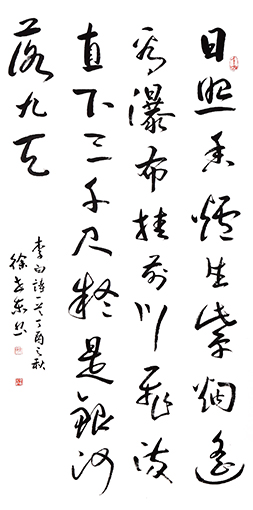 日照香爐生紫烟遥
看瀑布挂前川飛流
直下三千尺疑是銀河
落九天
李白詩一首丁酉之秋
徐